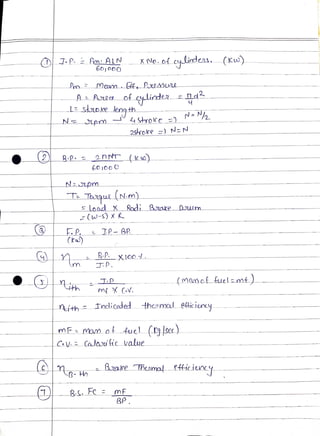 ① I.P. = Pm ALN X No. of cylinders. (kw)
60,000
Pm = mean Eff. Pressure
A = Area of cylinder = πd²
4
L = stroke length
N = rpm 4 stroke => N = N/2
2stroke => N=N
② B.P. = 2πNT (kw)
60,000
N = rpm
T = Torque (N.m)
= Load X Radi Brake Drum
= (W-S) X R
③ F.P. = IP - BP.
(kw)
④ ηm = B.P. X100 %.
I.P.
⑤ ηith = I.P (mass of fuel = mf)
mf X C.V.
ηith = Indicated thermal efficiency
mF = mass of fuel (kg/sec)
C.V. = Calorific value
⑥ ηB-th = Brake Thermal efficiency
⑦ B.S. FC = mF
BP.